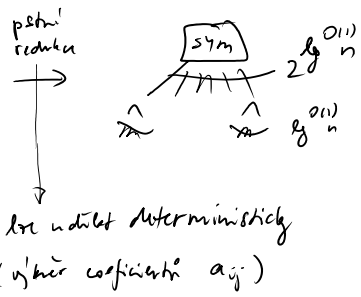 pstní
redukce
sym
2^lg^O(1) n
∧ ∧
lg^O(1) n
lze udělat deterministicky
(výběr coeficientů a_ij)